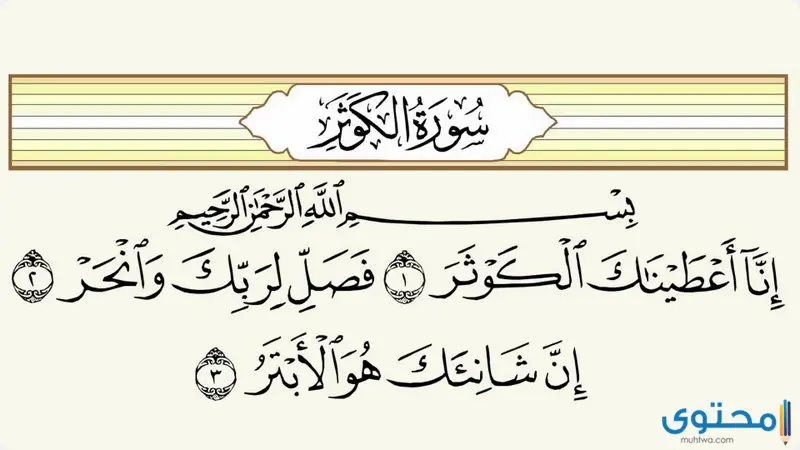 سُورَةُ الكَوْثَرِ
بِسْمِ ٱللَّهِ ٱلرَّحْمَٰنِ ٱلرَّحِيمِ
إِنَّآ أَعْطَيْنَاكَ ٱلْكَوْثَرَ ١ فَصَلِّ لِرَبِّكَ وَٱنْحَرْ ٢
إِنَّ شَانِئَكَ هُوَ ٱلْأَبْتَرُ ٣
محتوى
muhtwa.com